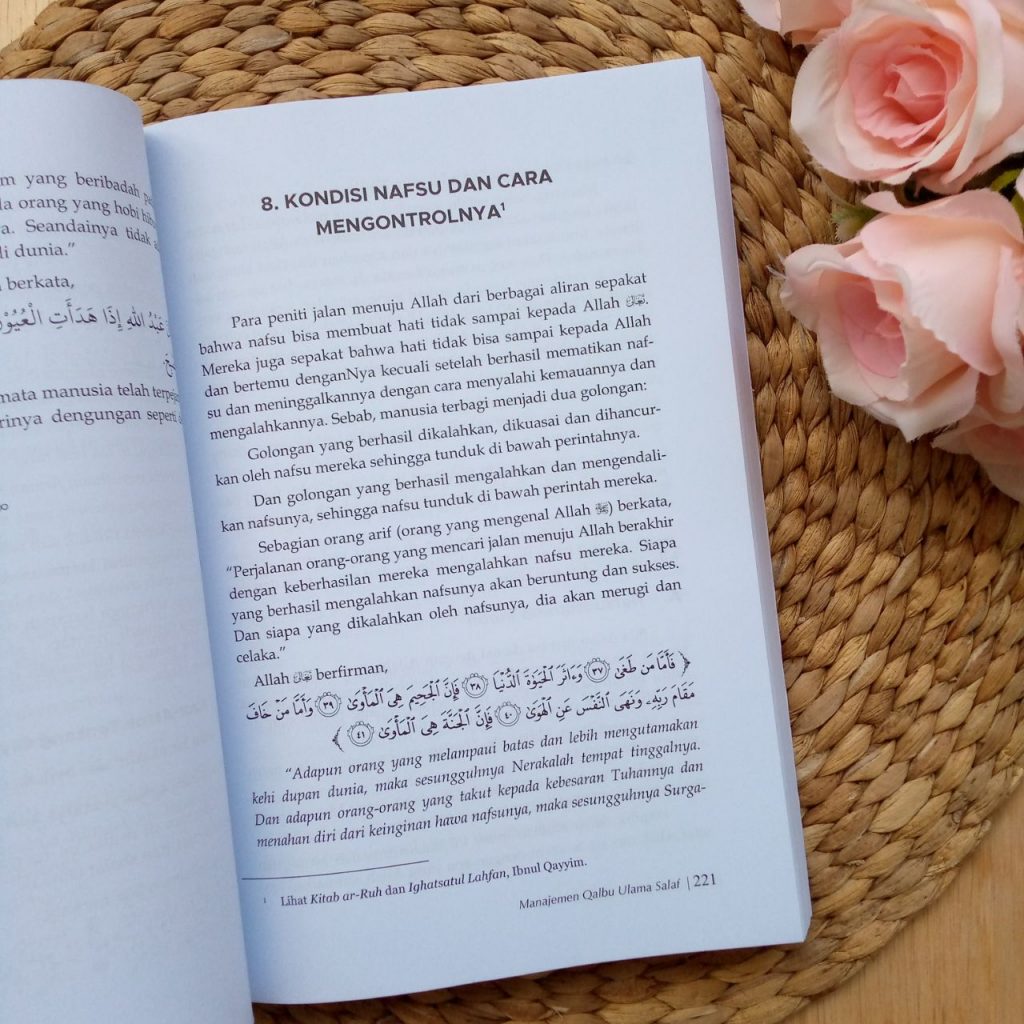 yang beribadah
orang yang hobi
Seandainya tidak
dunia.”
berkata,
عَبْدُ اللهِ إِذَا هَدَأَتِ الْعُيُوْنُ
mata manusia telah
dengungan seperti
8. KONDISI NAFSU DAN CARA
MENGONTROLNYA¹
Para peniti jalan menuju Allah dari berbagai aliran sepakat
bahwa nafsu bisa membuat hati tidak sampai kepada Allah.
Mereka juga sepakat bahwa hati tidak bisa sampai kepada Allah
dan bertemu denganNya kecuali setelah berhasil mematikan naf-
su dan meninggalkannya dengan cara menyalahi kemauannya dan
mengalahkannya. Sebab, manusia terbagi menjadi dua golongan:
Golongan yang berhasil dikalahkan, dikuasai dan dihancur-
kan oleh nafsu mereka sehingga tunduk di bawah perintahnya.
Dan golongan yang berhasil mengalahkan dan mengendali-
kan nafsunya, sehingga nafsu tunduk di bawah perintah mereka.
Sebagian orang arif (orang yang mengenal Allah) berkata,
“Perjalanan orang-orang yang mencari jalan menuju Allah berakhir
dengan keberhasilan mereka mengalahkan nafsu mereka. Siapa
yang berhasil mengalahkan nafsunya akan beruntung dan sukses.
Dan siapa yang dikalahkan oleh nafsunya, dia akan merugi dan
celaka.”
Allah berfirman,
﴿ فَأَمَّا مَن طَغَىٰ ٣٧ وَءَاثَرَ ٱلْحَيَوٰةَ ٱلدُّنْيَا ٣٨ فَإِنَّ ٱلْجَحِيمَ هِىَ ٱلْمَأْوَىٰ ٣٩ وَأَمَّا مَنْ خَافَ
مَقَامَ رَبِّهِۦ وَنَهَى ٱلنَّفْسَ عَنِ ٱلْهَوَىٰ ٤٠ فَإِنَّ ٱلْجَنَّةَ هِىَ ٱلْمَأْوَىٰ ٤١ ﴾
“Adapun orang yang melampaui batas dan lebih mengutamakan
kehi dupan dunia, maka sesungguhnya Nerakalah tempat tinggalnya.
Dan adapun orang-orang yang takut kepada kebesaran Tuhannya dan
menahan diri dari keinginan hawa nafsunya, maka sesungguhnya Surga-
¹ Lihat Kitab ar-Ruh dan Ighatsatul Lahfan, Ibnul Qayyim.
Manajemen Qalbu Ulama Salaf | 221